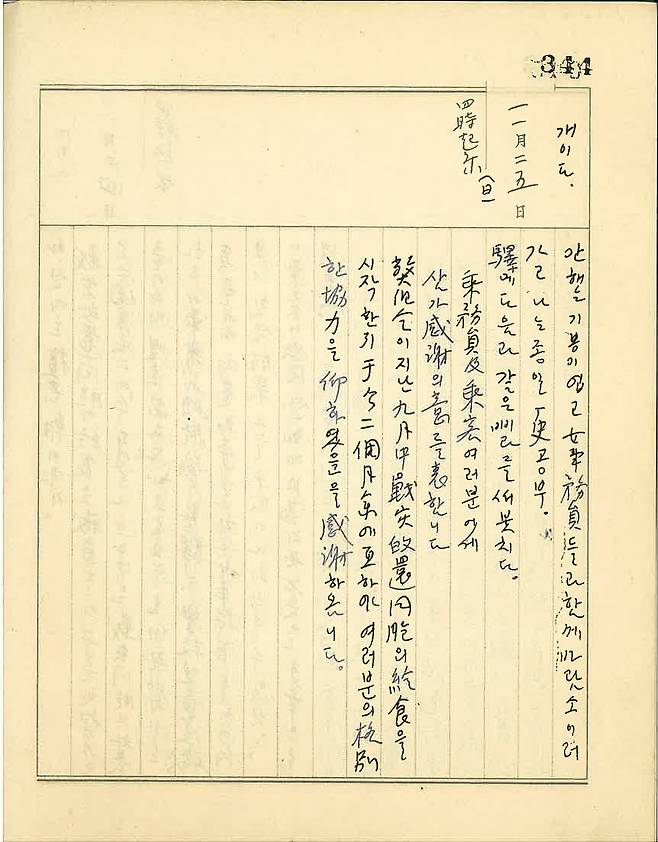 344
개이다.
一一月二五日
四時起床(日)
안해는 기분이 업고 女事務員들과 함께 바람 소이러
가고 나는 종일 歷史 공부.
驛에 다음과 갈은 삐라를 써 붓치다.
乘務員及乘客 여러분에게
삼가 感謝의 意를 表합니다
지난 九月中 戰災 的 還 同胞의 給食을
시작한 기 于今 二個月余에 亘하야 여러분의 格別
한 協力을 仰하였음을 感謝하옵니다.